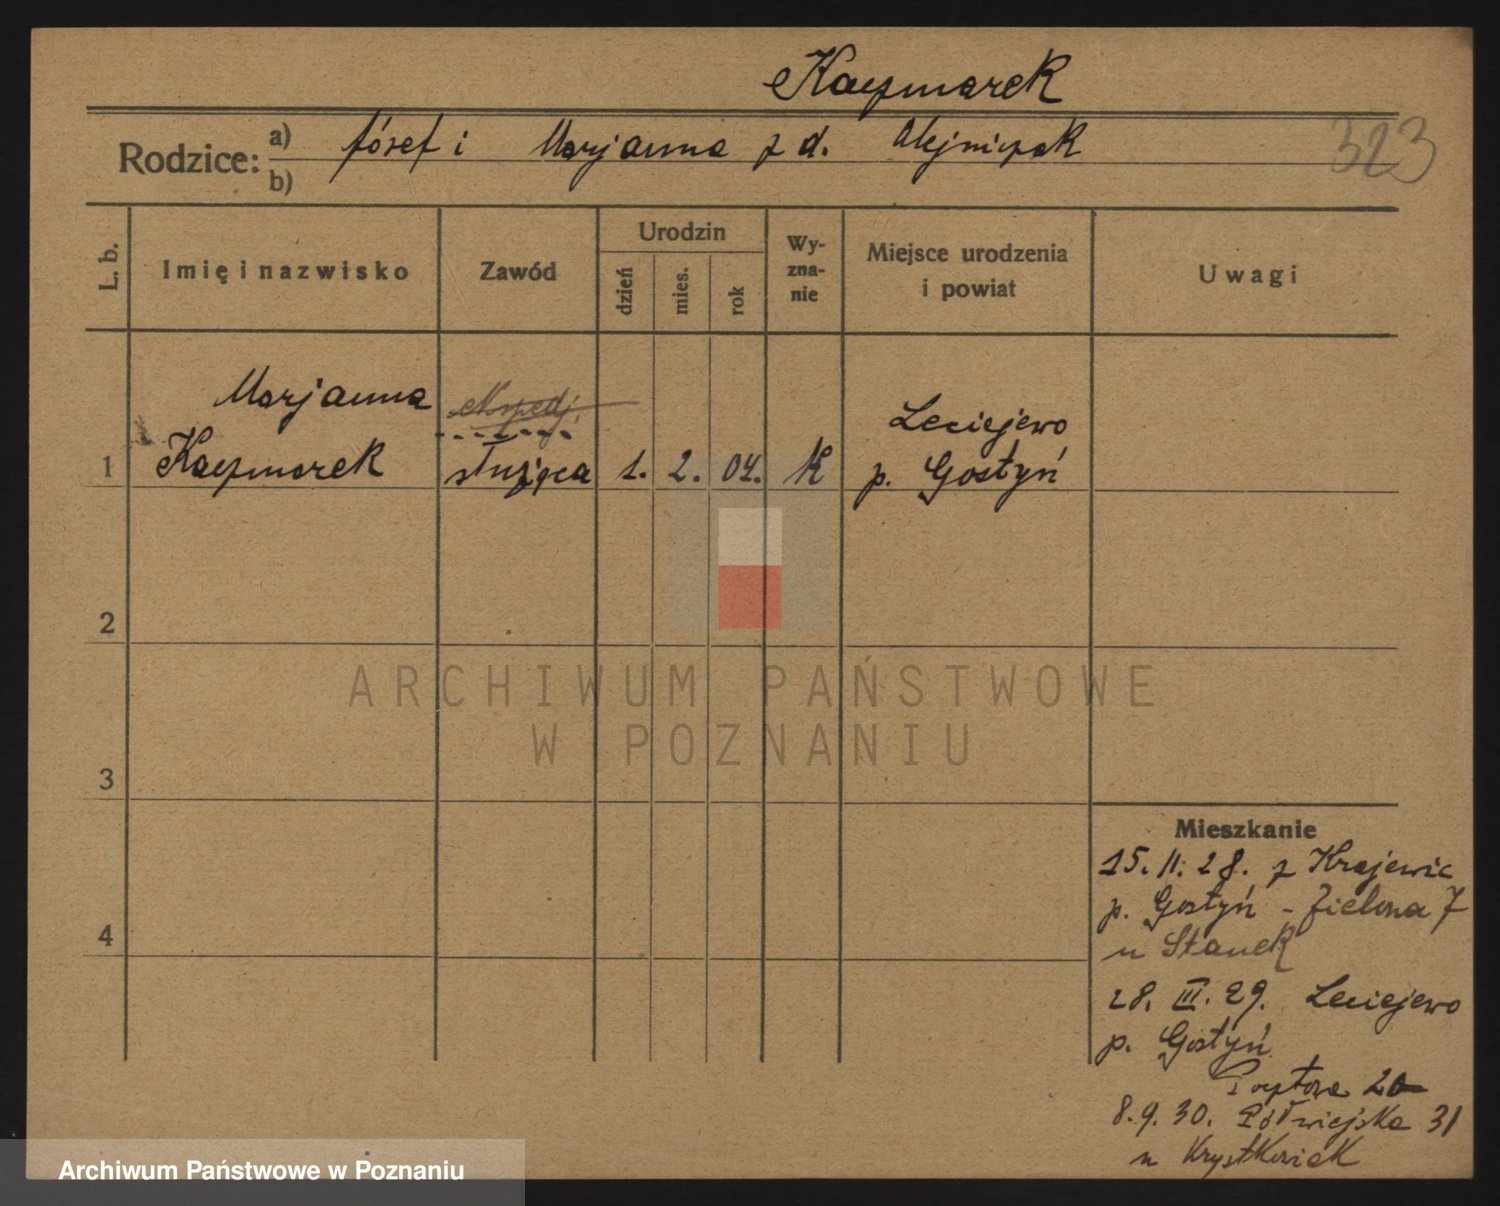 Kaczmarek
323
Rodzice: a) Józef i Marjanna z d. Olejniczak
b)
L. b.
Imię i nazwisko
Zawód
Urodzin
dzień
mies.
rok
Wy-
zna-
nie
Miejsce urodzenia
i powiat
Uwagi
Marjanna
ekspedj.
Leciejewo
1 Kaczmarek służąca 1. 2. 04. K p. Gostyń
2
3
4
ARCHIWUM PAŃSTWOWE
W POZNANIU
Mieszkanie
15. II. 28. z Krajewic
p. Gostyń - Zielona 7
u Stanek
28. III. 29. Leciejewo
p. Gostyń
20
8.9.30. Półwiejska 31
u Krystkowiak
Archiwum Państwowe w Poznaniu